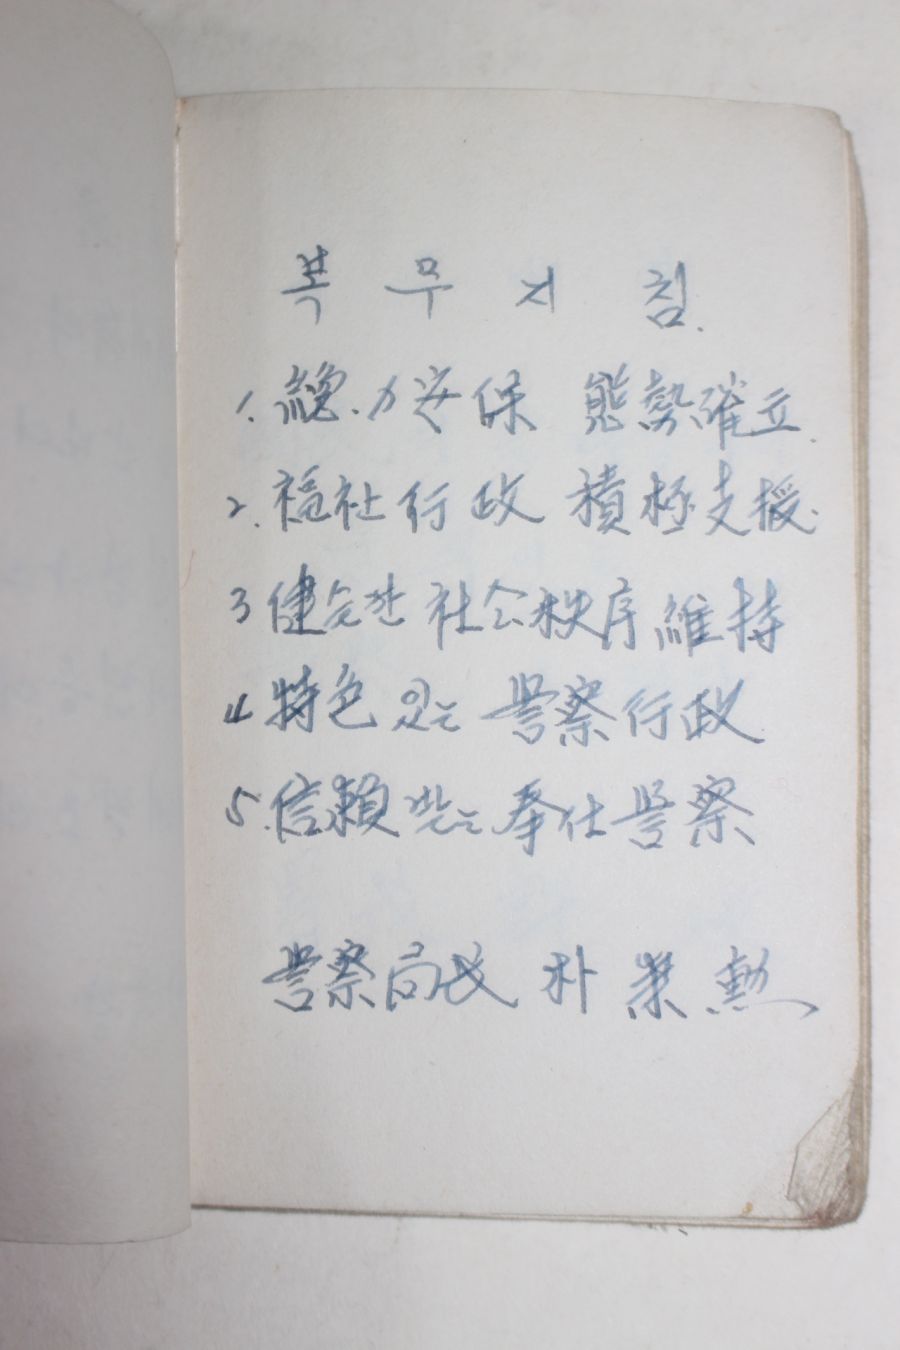 복 무 지 침.
1. 總力安保 態勢確立.
2. 福祉行政 積極支援.
3 健全한 社會秩序維持
4 特色 있는 警察行政
5. 信賴받는 奉仕警察
警察局長 朴 業 勳